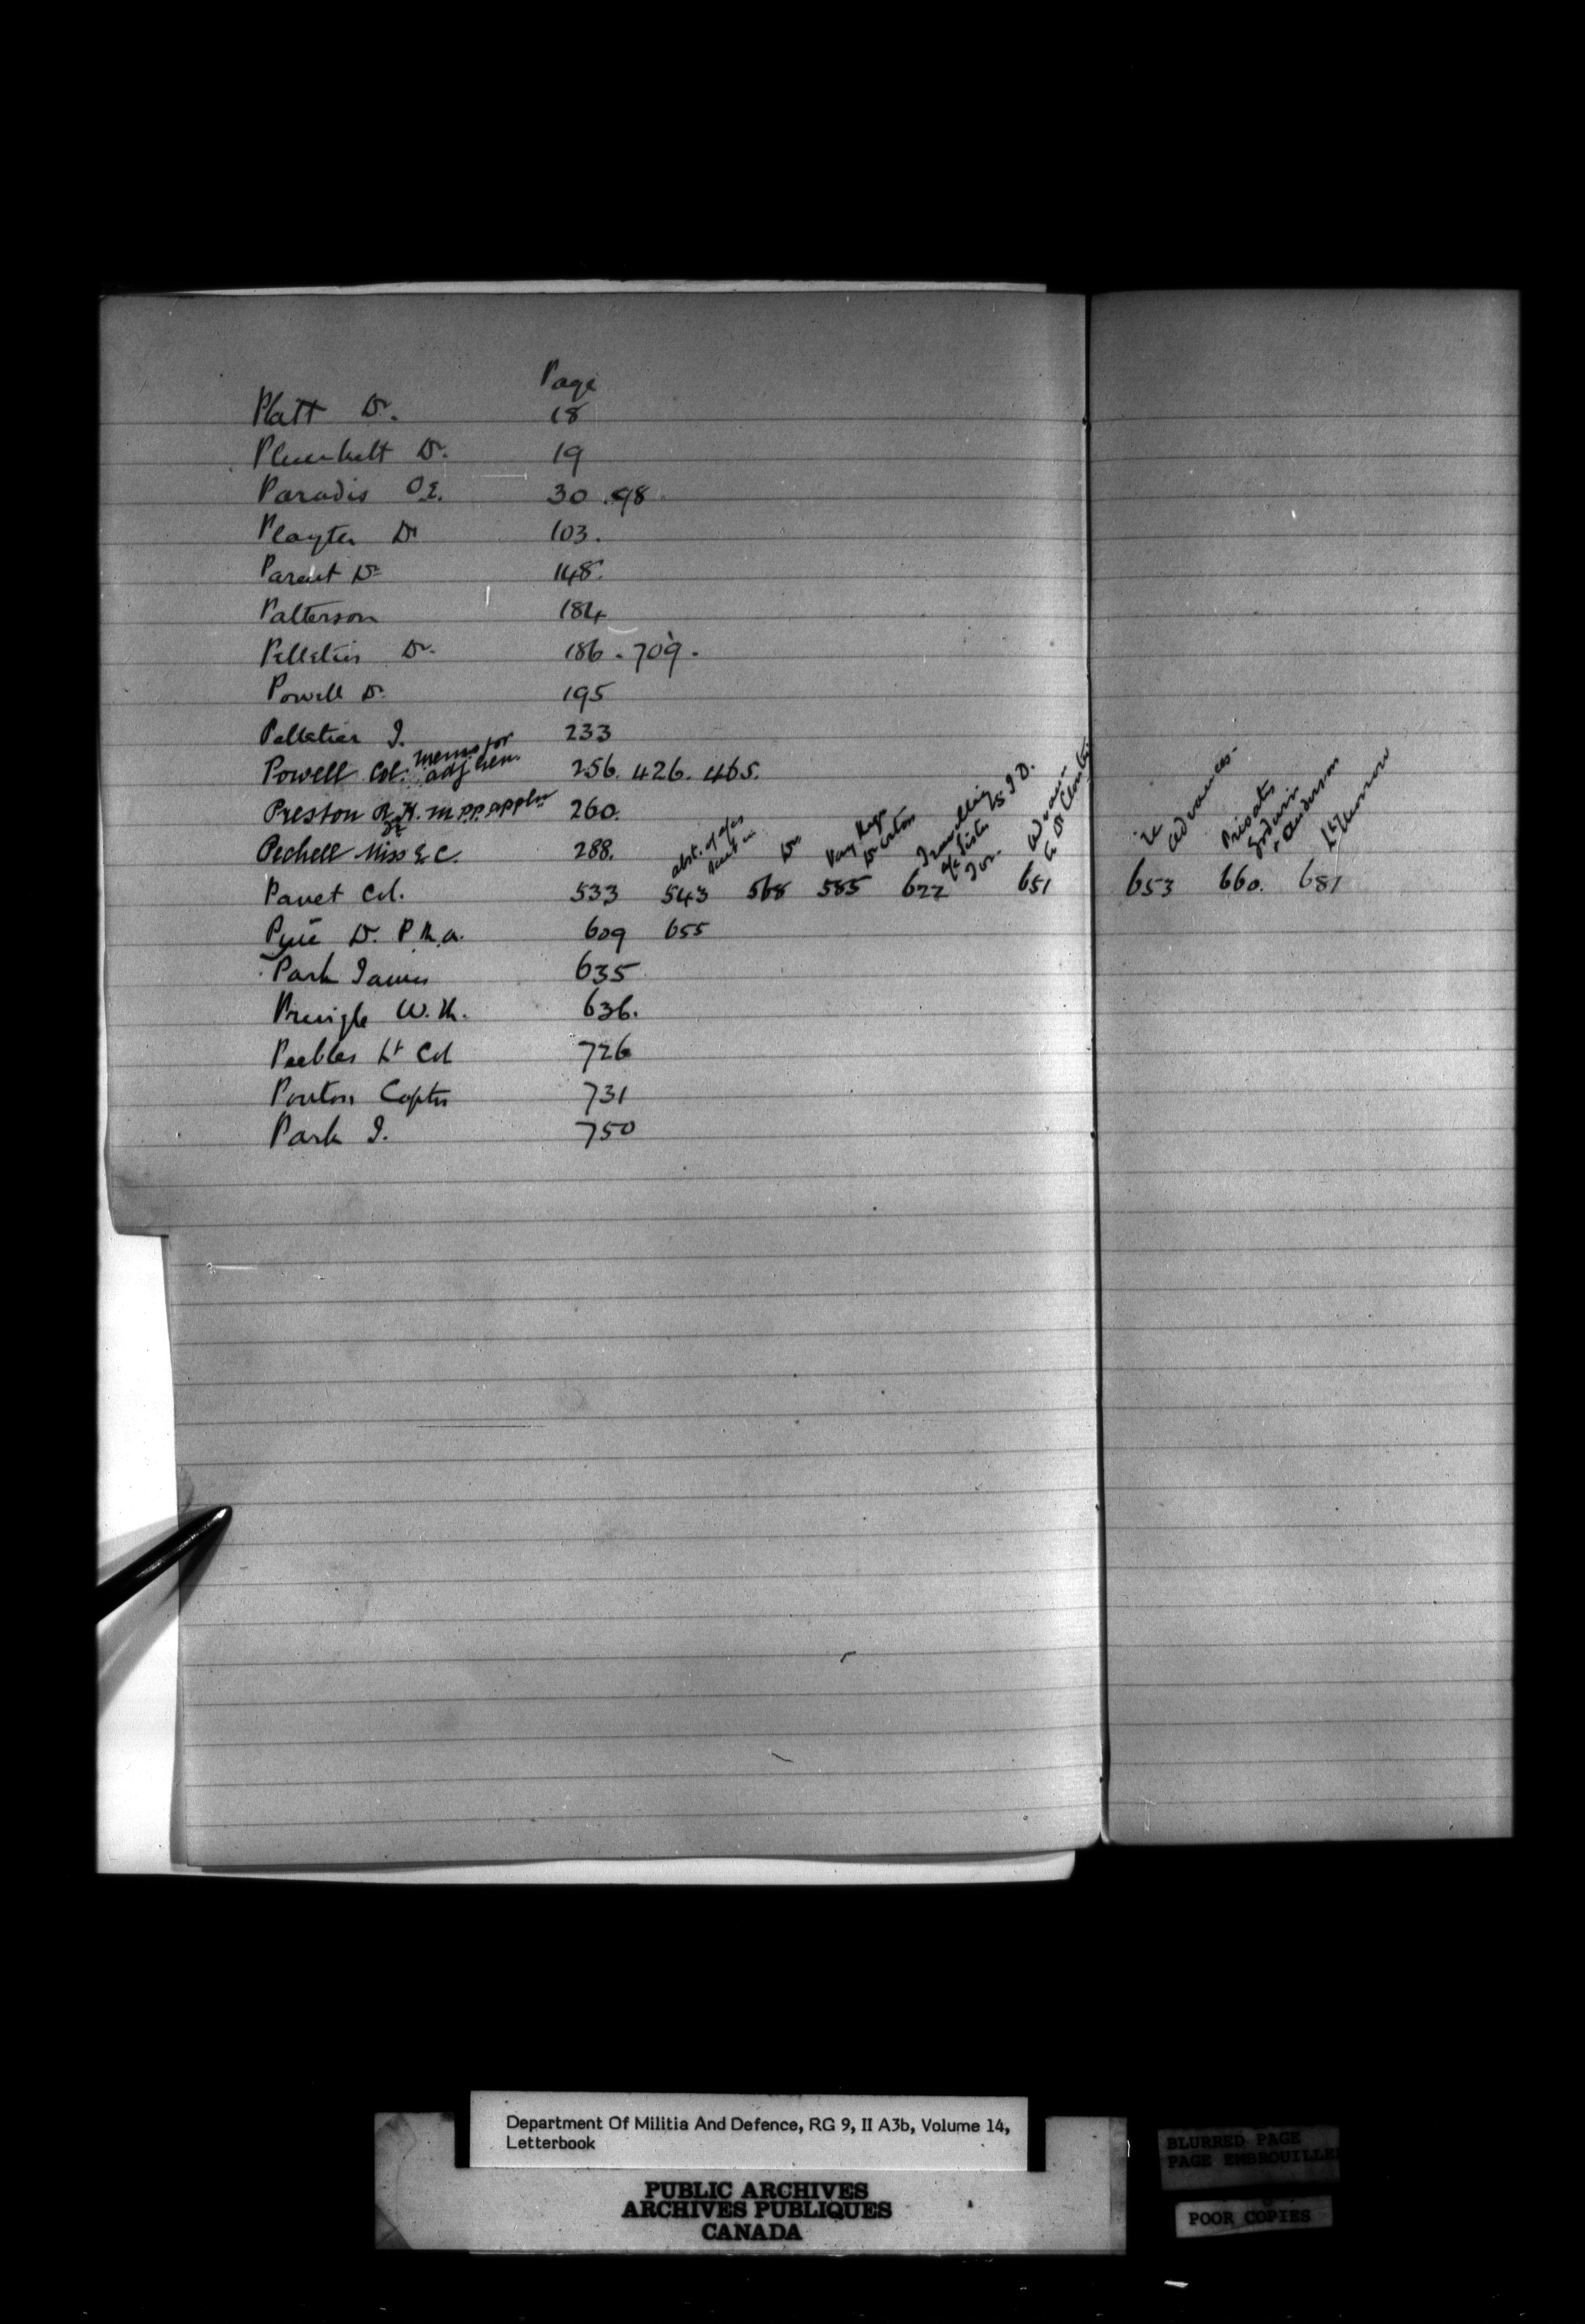 Page
Platt Dr. 18
Plunkett Dr. 19
Paradis O.E. 30 . 98
Playter Dr 103.
Parent Dr 148.
Patterson 184
Pelletier Dr. 186 . 709 .
Powell Dr. 195
Pelletier J. 233
Powell Col. memo for adj Gen. 256. 426. 465.
Preston Dr R.H. M.P.P. appln 260.
Pechell Miss E.C. 288.
Panet Col. 533 543 568 585 622 651 653 660. 681
abst. of a/cs
Dr
Travelling
a/c
Advance
to Dr
re advances
Privates
& Anderson
Lt
Pyne Dr. P.M.O. 609 655
Park James 635
Pringle W.H. 636.
Peebles Lt Col 726
Panton Captn 731
Park J. 750
Department Of Militia And Defence, RG 9, II A3b, Volume 14,
Letterbook
PUBLIC ARCHIVES
ARCHIVES PUBLIQUES
CANADA
BLURRED PAGE
PAGE EMBROUILLE
POOR COPIES